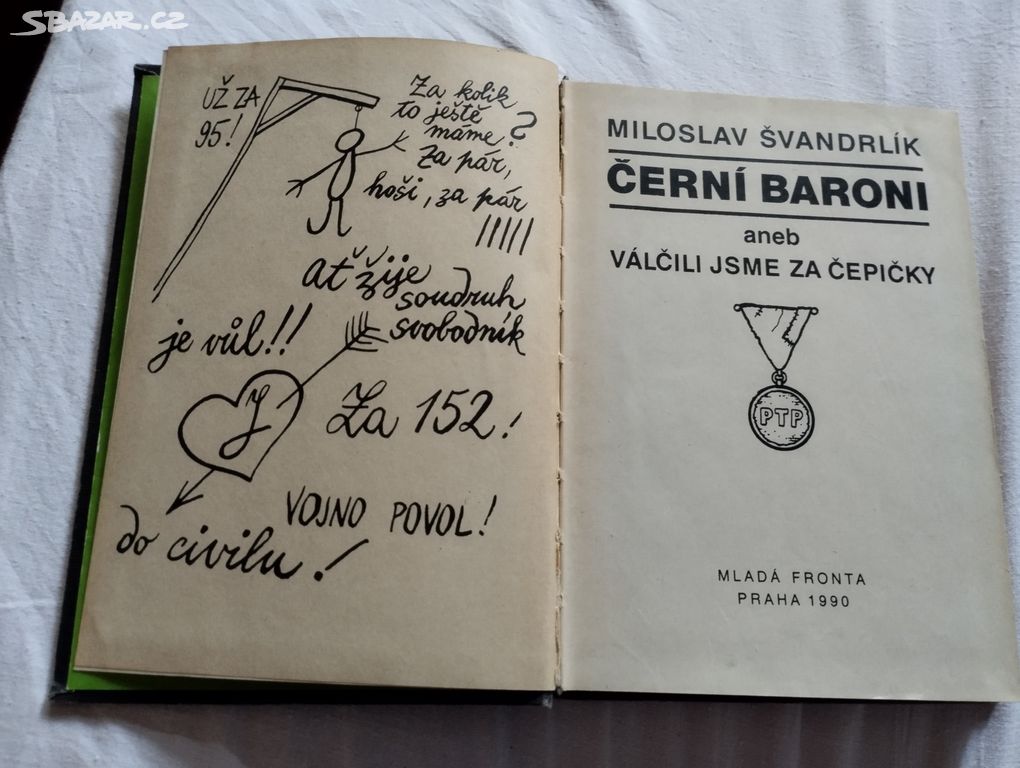 SBAZAR.CZ
UŽ ZA
95!
Za kolik
to ještě
máme?
Za pár,
hoši, za pár
Ať žije
soudruh
svobodník
je vůl!!
J
Za 152!
VOJNO POVOL!
do civilu!
MILOSLAV ŠVANDRLÍK
ČERNÍ BARONI
aneb
VÁLČILI JSME ZA ČEPIČKY
PTP
MLADÁ FRONTA
PRAHA 1990